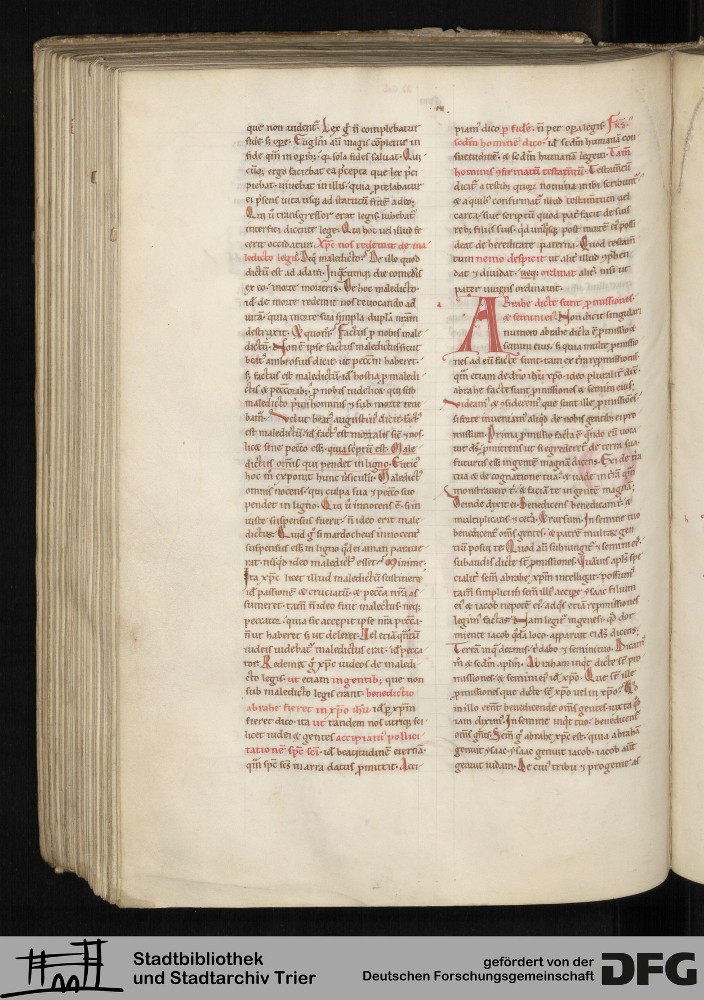 que non uident. Lex g̃ ñ complebatur
fide. s; ope. Euglm̃ aũ magis cõpletur in
fide qm̃ in operib; q̃ sola fides saluat. Qui
cũq; ergo faciebat ea p̃cepta que lex p̃ci
piebat. uiuebat in illis. quia
ei p̃sens uita usq; ad
Qui ũ transgressor erat legis iubebat̃
interfici dicente lege. Qui hoc uel illud fe
cerit occidatur. Xp̃c nos redemit de ma
ledicto legis. De illo quod
dictũ est ad adam. In q̃cumq; die comedis
ex eo. morte morieris. De hoc maledicto.
id. de morte redemit nos reuocando ad
uitã. quia morte sua simpla. duplã nr̃am
destruxit. Factus p nobis male
dictũ. Non ẽ ipse factus maledictus. sicut
beat̃ ambrosius dicit. ut pecc̃m haberet.
s; factus est maledictũ. id. hostia p maledi
ctis
maledicto
Uelut beat̃ augustin̾ dicit. fact̾
est maledictũ. id. fact̾ est mortalis sic̃ & nos.
licet sine pecc̃o ess;. quia sc̾ptũ est. Male
dictus omis qui pendet in ligno.
hoc m̃ exponit hunc uersiculũ. Maledict̾
omnis nocens. qui culpa sua & pecc̃o suo
pendet in ligno. Qui ũ innocens ẽ. si in
iuste suspensus fuerit. ñ ideo erit male
dictus. Quid g̃ si mardocheus innocens
suspensus ess; in ligno qd̾ ei aman paraue
rat. nũq̃d ideo maledict̾ esset? Minime.
Ita xp̃c licet illud maledictũ sustinuerit
id. passionẽ & cruciatũ. & pecca nr̃a as
sumeret. tam̃ ñ ideo fuit maledictus neq;
peccator. quia sic accepit ipse nr̃a pecca.
ñ ut haberet s; ut deleret. Uel etiã
iudeis uidebat̃ maledictus erat. id. pecca
tor. Redemit g̃ xp̃c iudeos de maledi
cto legis. ut etiam in gentib; que non
sub maledicto legis erant. benedictio
abrahe fieret in xp̃o ihũ. id. p xp̃m
fieret. dico ita ut tandem nos utriq; sci
licet iudei & gentes accipiam̾ pollici
tationẽ sp̃c sc̃i. id. beatitudinẽ eternã.
qm̃ sp̃c sc̃s in arra datus p̃mittit. Acci
piam̾ dico p fidẽ. ñ per opera legis. Fr̃s.
sed̃m hominẽ dico. id. sed̃m humanã con
suetudinẽ. & sed̃m humanã legem. Tam̃
hominis 9firmatũ testam̃tũ. Testam̃tũ
dicit̃ a testib; quoꝝ nomina inibi scribunt̃.
& a quis confirmat̃ illud testam̃tum. uel
carta siue scriptũ quod pat̃ facit de suis
reb; filiis suis. qd̾ unusq;sq; post mortẽ ei̾ possi
deat de hereditate paterna. Quod testam̃
tum nemo despicit ut alit̃ illud
dat & diuidat. neq; ordinat alit̃ nisi ut
pater uiuens ordinauit.
Abrahe dicte sunt p̃missiones
& semini ei̾. Non dicit singulari
numero abrahe dicta ẽ p̃missio &
semini eius. s; quia multe p̃missio
nes ad eũ facte sunt. tam ex
qm̃ etiam de dño ihũ xp̃o. ideo pluralit̃ dix̃.
abrahe facte sunt p̃missiones & semini eius.
Uideam̾ & sideremus que sunt ille p̃missiões.
Prima p̃missio facta ẽ
ut egrederet̃ de terra sua.
futurus ess; in gente magnã dicens. Exi de tr̃a
tua & de cognatione tua. & uade in tr̃ã qm̃
monstrauero t̃. & faciã te in gentẽ magnã.
Deinde dixit ei. Benedicens benedicam t̃. &
multiplicans & cet̃a. & rursum. In semine tuo
benedicent̃ om̃s gentes. & patrẽ multaꝝ gen
tiũ posui te. Quod aũ subiungit̃ & semini ei̾.
subaudis dicte s̃t p̃missiones.
cialit̃ sem̃ abrahe xp̃m intelligat. possum̾
tam̃ simplicit̃ sem̃ ill̾ accipe ysaac filium
ei̾ & iacob nepotẽ ei̾.
legim̾ factas. Nam legit̃ in genesi. q̾ dor
mienti iacob qd̃a loco. apparuit ei dñs dicens.
Terrã in qua dormis. t̃ dabo & semini tuo. Dicam̾
m̃ & sed̃m apl̃m. Abraham inq̃t dicte s̃t pro
missiones. & semini ei̾ id. xp̃o. Que s̃t ille
p̃missiones que dicte s̃t xp̃o uel in xp̃o.
in illo om̃s benedicende om̃s gentes. iuxta q̾
iam dixim̾. In semine inq̃t tuo benedicent̃
om̃s gn̾tes. Sem̃ g̃ abrahe xp̃c est. quia abrahã
genuit ysaac. ysaac genuit iacob. iacob aũt
genuit iudam. De cui̾ tribu & progenie as
Stadtbibliothek
und Stadtarchiv Trier
gefördert von der
Deutschen Forschungsgemeinschaft
DFG